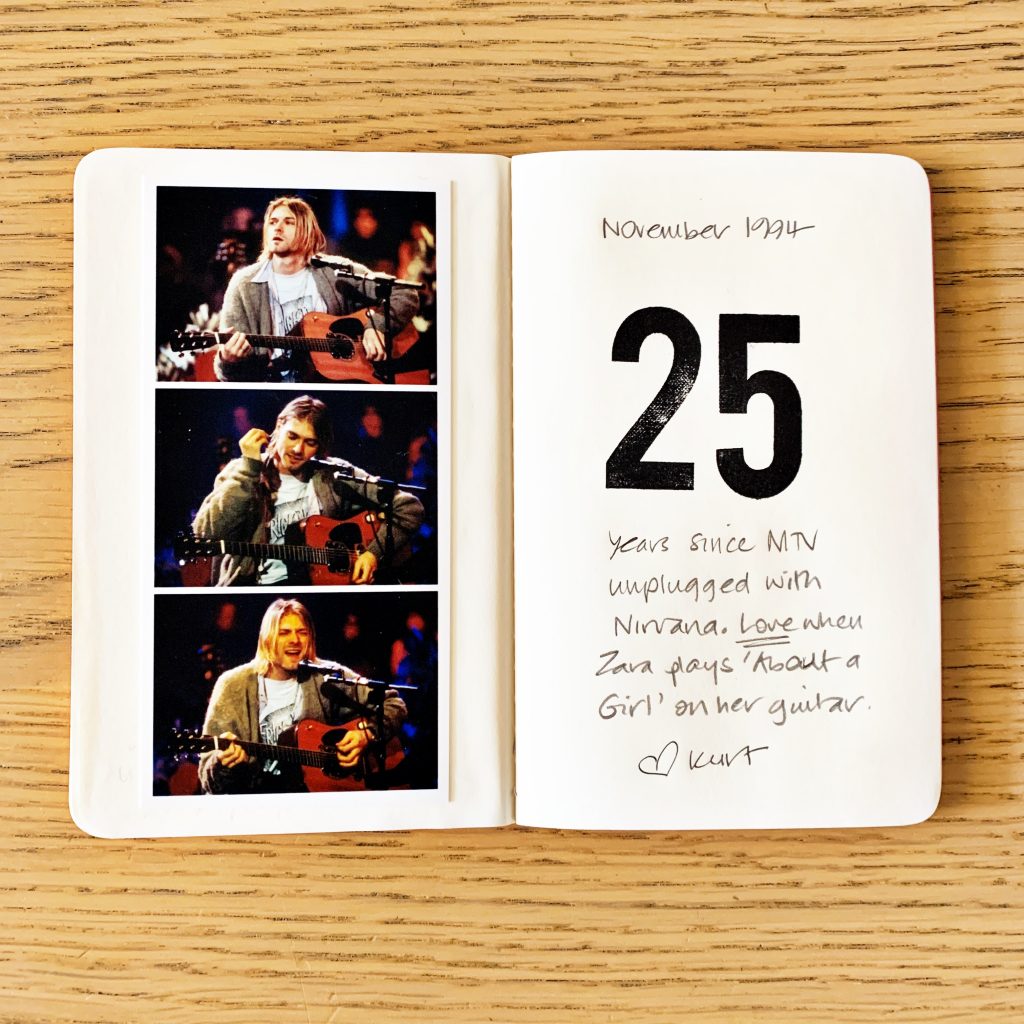 November 1994
25
years since MTV
unplugged with
Nirvana. Love when
Zara plays 'About a
Girl' on her guitar.
♡ Kurt